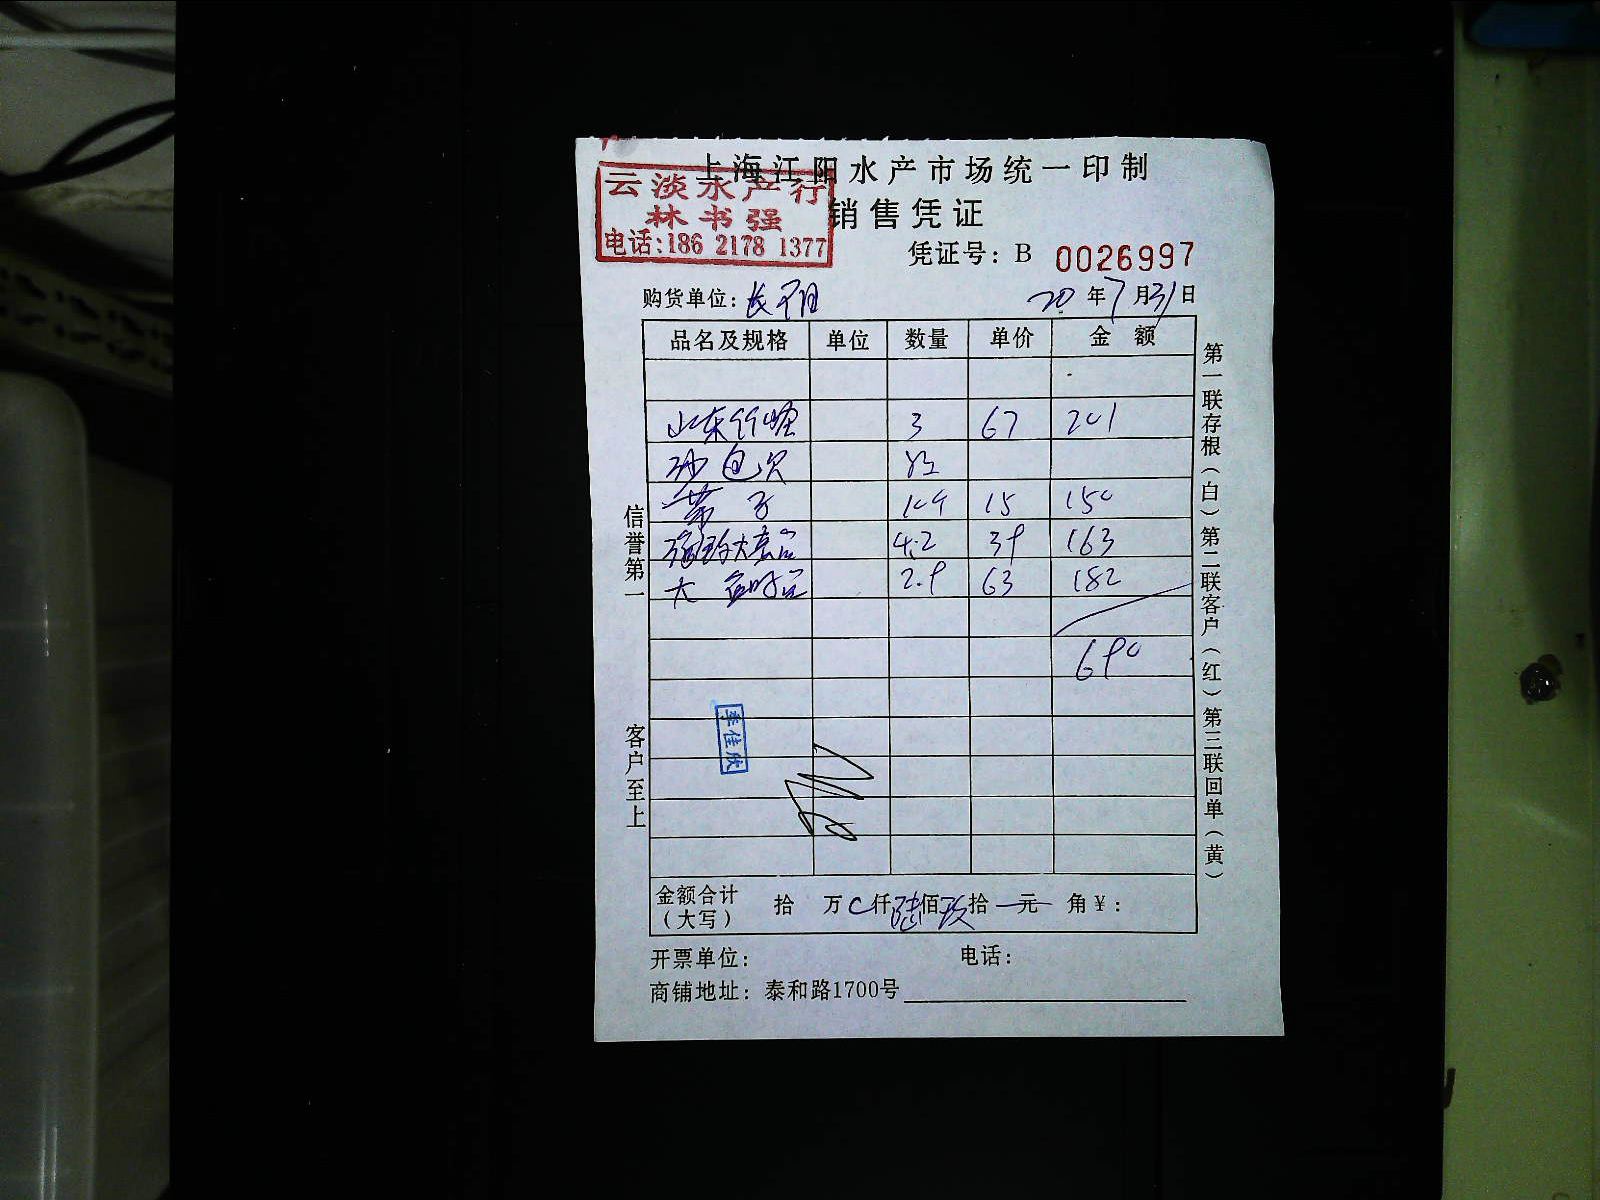 上海江阳水产市场统一印制
云淡水产行
林书强
电话:186 2178 1377
销售凭证
凭证号: B 0026997
购货单位: 长阳
20年7月31日
品名及规格 单位 数量 单价 金额
山东竹蛏 3 67 201
沙包
带子 15 150
4.2 39 163
大 2.9 63 182
690
信誉第一
客户至上
第一联存根(白)第二联客户(红)第三联回单(黄)
李佳欣
金额合计(大写) 拾 万 仟陆佰玖拾 元 角¥:
开票单位: 电话:
商铺地址: 泰和路1700号